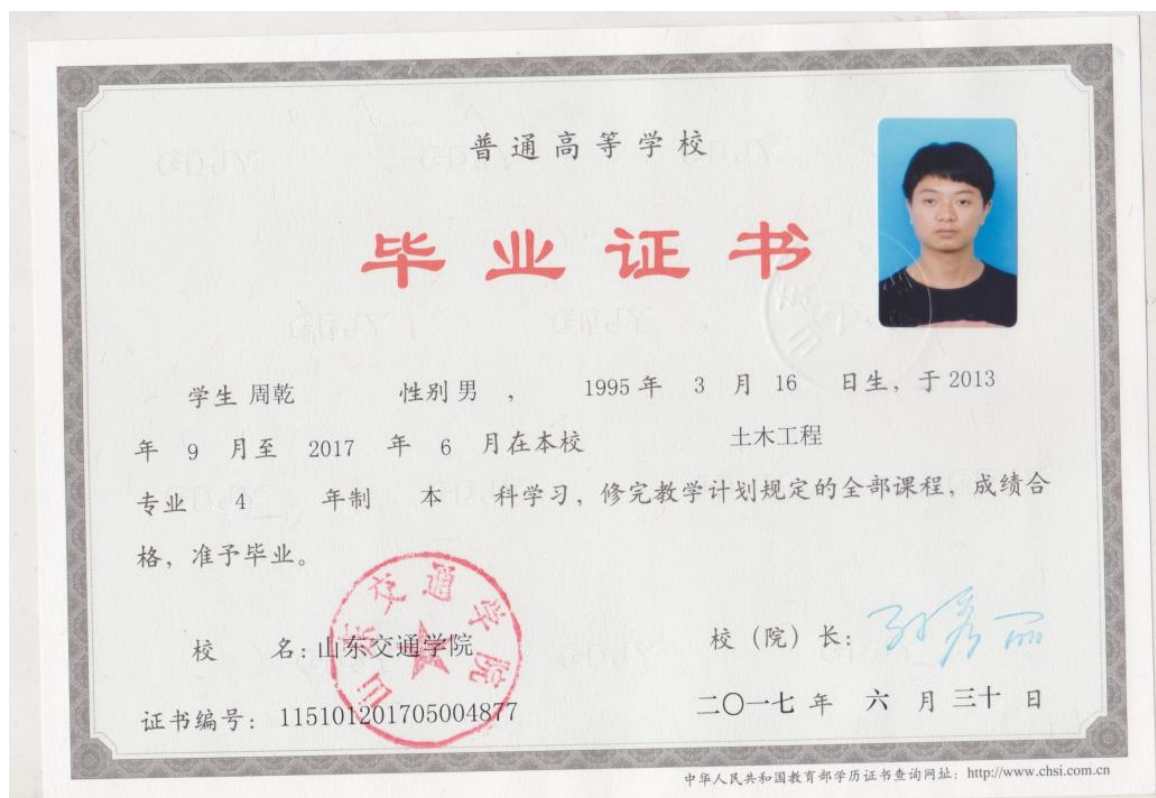 普通高等学校
毕业证书
学生 周乾 性别 男 , 1995 年 3 月 16 日生, 于 2013
年 9 月至 2017 年 6 月在本校 土木工程
专业 4 年制 本 科学习, 修完教学计划规定的全部课程, 成绩合
格, 准予毕业。
山东交通学院
校 名: 山东交通学院
校（院）长:
证书编号: 115101201705004877
二〇一七 年 六 月 三十 日
中华人民共和国教育部学历证书查询网址: http://www.chsi.com.cn